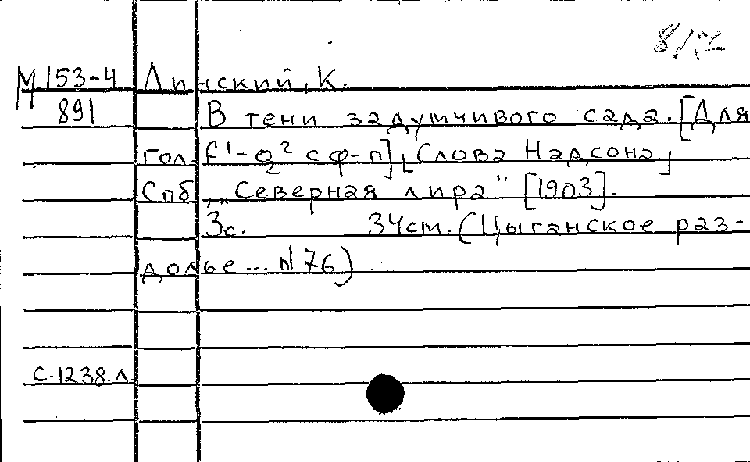 М 153-4 Линский, К.
891 В тени задумчивого сада. [Для
гол. f¹-g² с ф-п] [Слова Надсона]
Спб „Северная лира" [1903].
3с. 34см. (Цыганское раз-
долье... №76)
С.1238 л